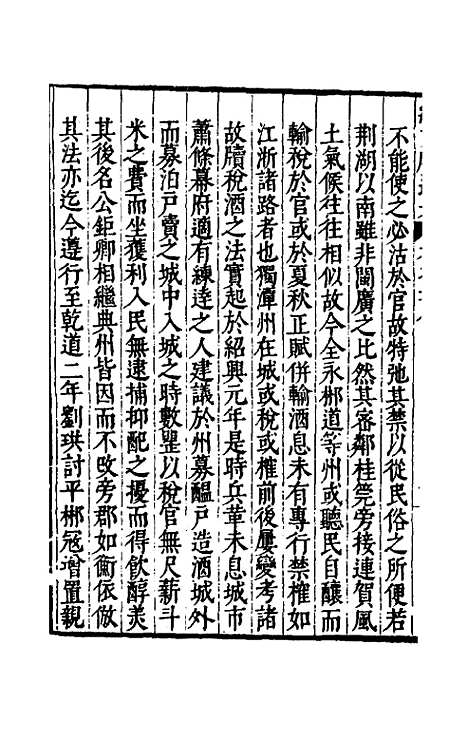 不能使之必沽於官故特弛其禁以從民俗之所便若
荆湖以南雖非閩廣之比然其密鄰桂筦旁接連賀風
土氣候往往相似故今全永郴道等州或聽民自釀而
輸稅於官或於夏秋正賦併輸酒息未有專行禁榷如
江浙諸路者也獨潭州在城或稅或榷前後屢變考諸
故牘稅酒之法實起於紹興元年是時兵革未息城市
蕭條幕府適有練逹之人建議於州募醖戸造酒城外
而募泊戸賣之城中入城之時數罌以稅官無尺薪斗
米之費而坐獲利入民無逮捕抑配之擾而得飲醇美
其後名公鉅卿相繼典州皆因而不攺旁郡如衡依倣
其法亦迄今遵行至乾道二年劉珙討平郴冦增置親